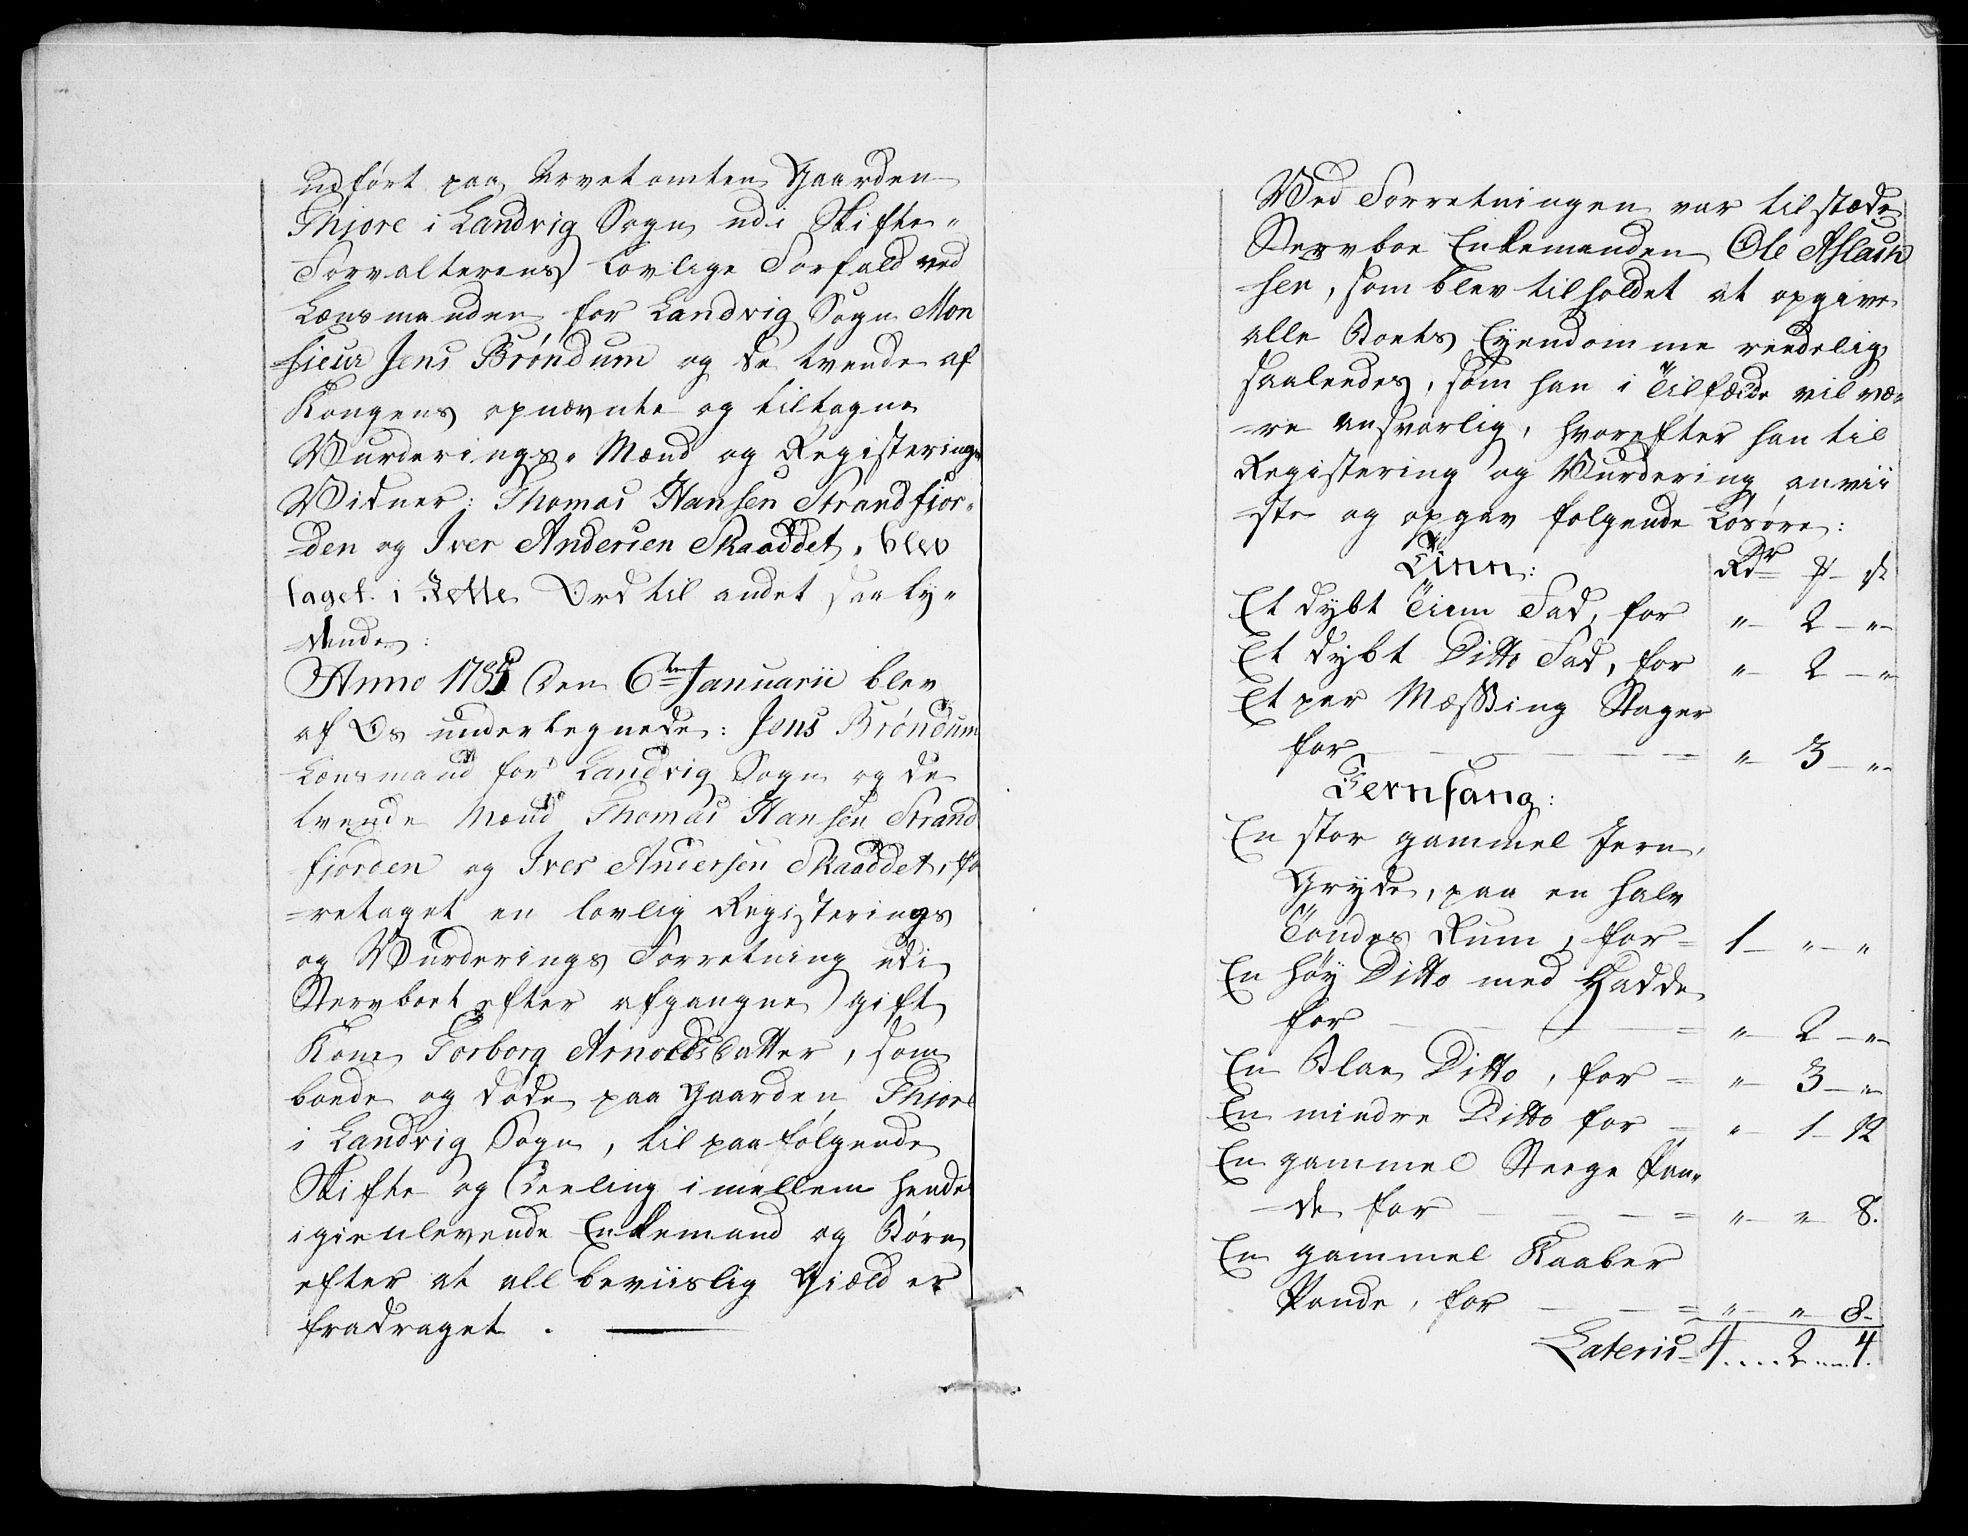 udført paa Arvetomten Gaarden
Thiore i Landvig Sogn udi Skifte-
Forvalterens lovlige Forfald ved
Lænsmanden for Landvig Sogn Mon
-sieur Jens Brøndum og de tvende af
Kongens opnævnte og tiltagne
Vurderings-Mænd og Registerings-
Vidner: Thomas Hansen Strandfior-
-den og Iver Andersen Skaaddet, blev
taget i Rette Ord til andet saa ly-
dende:
Anno 1785 den 6te Januarii blev
af Os undertegnede: Jens Brøndum
Lænsmand for Landvig Sogn og de
tvende Mænd Thomas Hansen Strand
fiorden og Iver Andersen Skaaddet, fo
-retaget en lovlig Registerings
og Vurderings Forretning udi
Stervboet efter afgangne gift
Kone Torborg Arnoldsdatter, som
boede og døde paa Gaarden Thiore
i Landvig Sogn, til paafølgende
Skifte og Deeling imellem hendes
igienlevende Enkemand og Børn
efter at all beviislig Giæld er
fradraget.
Ved Forretningen var tilstæde
Stervboe Enkemanden Ole Aslach
-sen, som blev tilholdet at opgive
alle Boets Eyendomme reedelig
saaledes, som han i Tilfælde vil væ-
-re ansvarlig, hvorefter han til
Registering og Vurdering anvii
-ste og opgav følgende Løsøre:
Tinn: Rdr ƥ ſk
Et dybt Tinn Fad, for " 2 "
Et dybt Ditto Fad, for " 2 "
Et par Mæssing Stager
for " 3 "
Jernfang:
En stor gammel Jern-
Gryde, paa en halv
Tøndes Rum, for 1 " "
En høy Ditto med Hadde
for " 2 "
En Blaa Ditto, for " 3 "
En mindre Ditto for " 1 12
En gammel Steege Pan-
-de for " " 8.
En gammel Kaaber
Pande, for " " 8
Lateris 4 .... 2 .... 4.